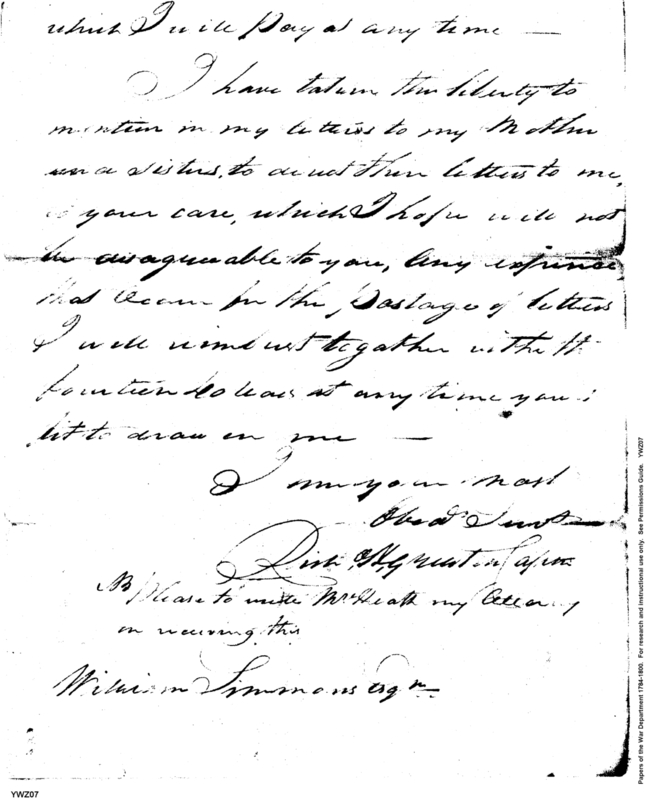 which I will Pay at any time —
I have taken the liberty to
mention in my letters to my Mother
and Sisters, to direct their letters to me,
to your care, which I hope will not
be disagreeable to you, Any expence
that Occur for the Postage of letters
I will reimburst together with the
fourteen Dollars at any time you
to draw on me —
I am your most
Obed Servt
Rich H Greaton Capn
NB Please to write Mr Heath my Attorney
on receiving this
William Simmons Esqr
YWZ07
Papers of the War Department 1784-1800. For research and instructional use only. See Permissions Guide. YWZ07